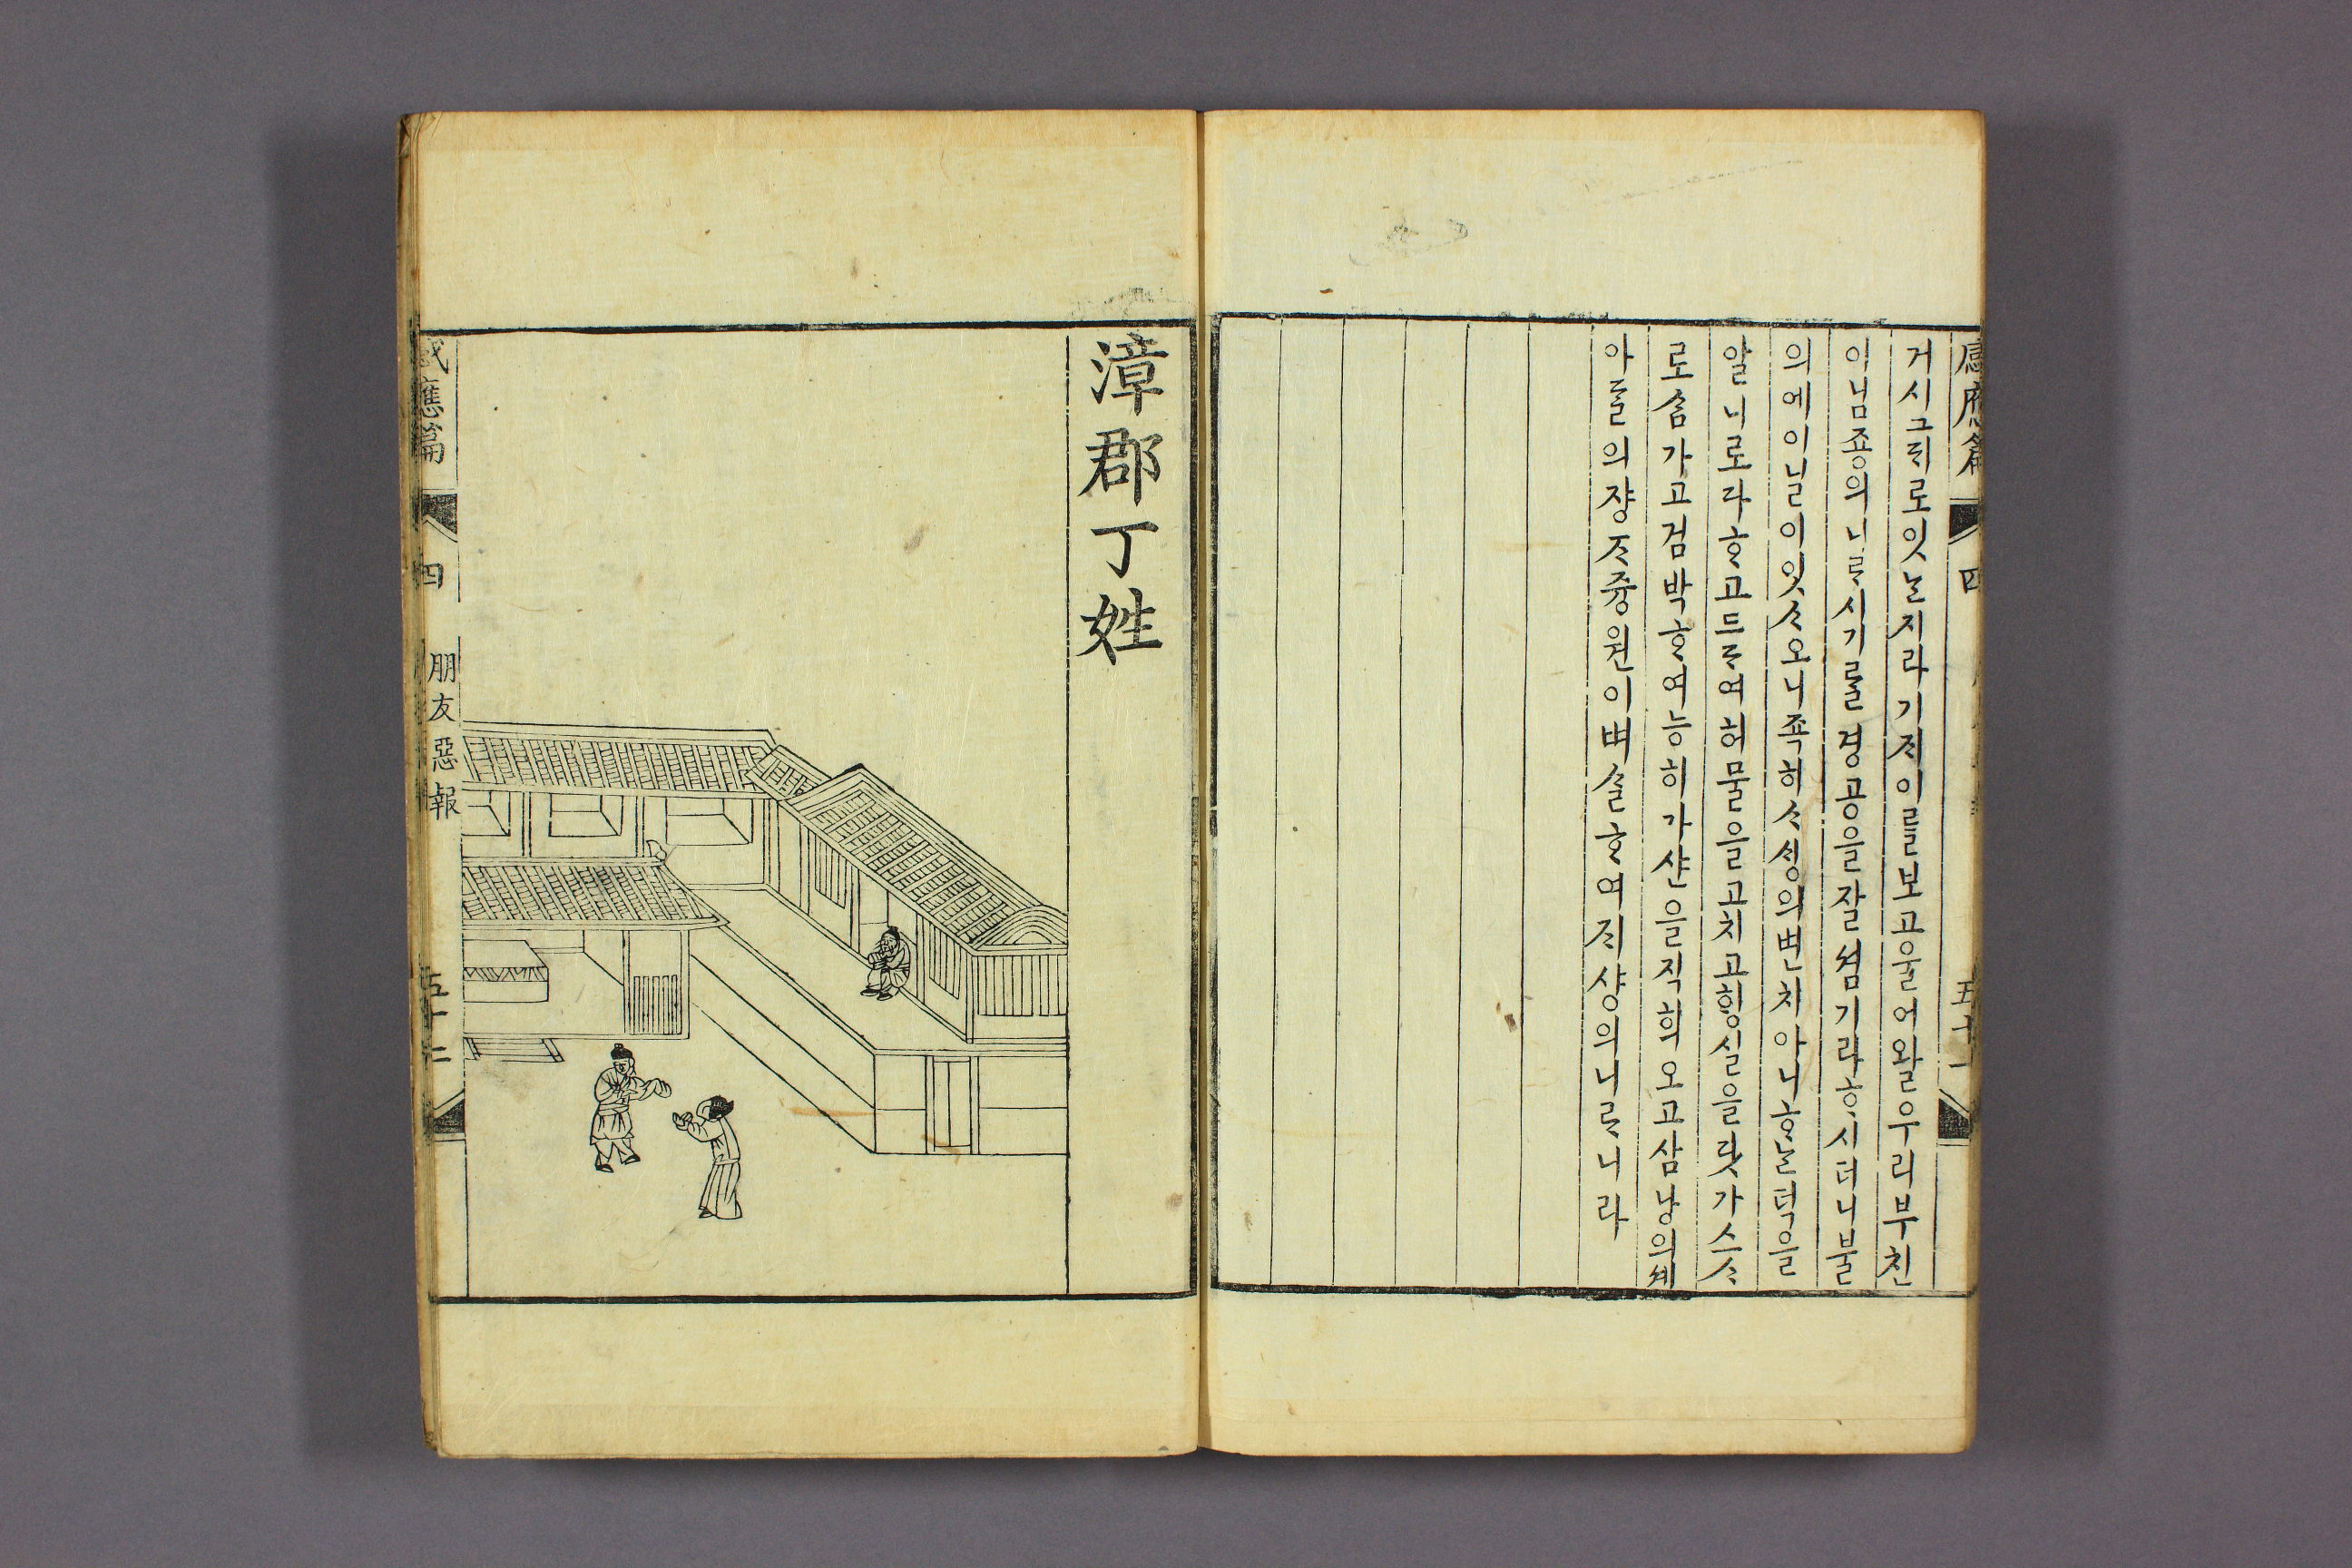 感應篇 四 五十一
거시그ᄃᆡ로잇ᄂᆞᆫ지라기ᄌᆡ이를보고울어왈우리부친
이님죵의니ᄅᆞ시기ᄅᆞᆯ경공을잘셤기라ᄒᆞ시더니불
의에이닐이잇ᄉᆞ오니죡히ᄉᆞᄉᆡᆼ의ᄲᅧᆫ치아니ᄒᆞᄂᆞᆫ덕을
알니로라ᄒᆞ고드ᄃᆡ여허물을고치고ᄒᆡᆼ실을닷가스ᄉᆞ
로ᄉᆞᆷ가고검박ᄒᆞ여능히가산을직희오고삼낭의셰
아ᄃᆞᆯ의쟝ᄌᆞ즁원이벼ᄉᆞᆯᄒᆞ여ᄌᆡ샹의니ᄅᆞ니라
漳郡丁姓
感應篇 四 朋友惡報 五十二